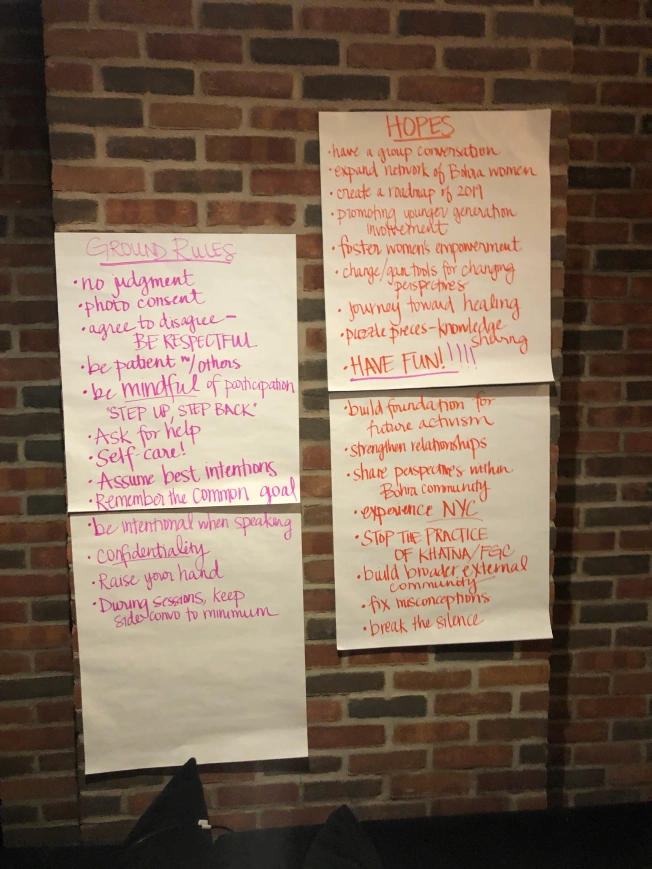 GROUND RULES
• no judgment
• photo consent
• agree to disagree –
BE RESPECTFUL
• be patient w/others
• be mindful of participation
"STEP UP, STEP BACK"
• Ask for help
• Self care!
• Assume best intentions
• Remember the common goal
• be intentional when speaking
• confidentiality
• Raise your hand
• During sessions, keep
side convo to minimum
HOPES
• have a group conversation
• expand network of Bohra women
• create a roadmap of 2019
• promoting younger generation
involvement
• foster women's empowerment
• change/gain tools for changing
perspectives
• journey toward healing
• puzzle pieces – knowledge
sharing
• HAVE FUN! !!!!
• build foundation for
future activism
• strengthen relationships
• share perspectives within
Bohra community
• experience NYC
• STOP THE PRACTICE
OF KHATNA/FGC
• build broader external
community
• fix misconceptions
• break the silence